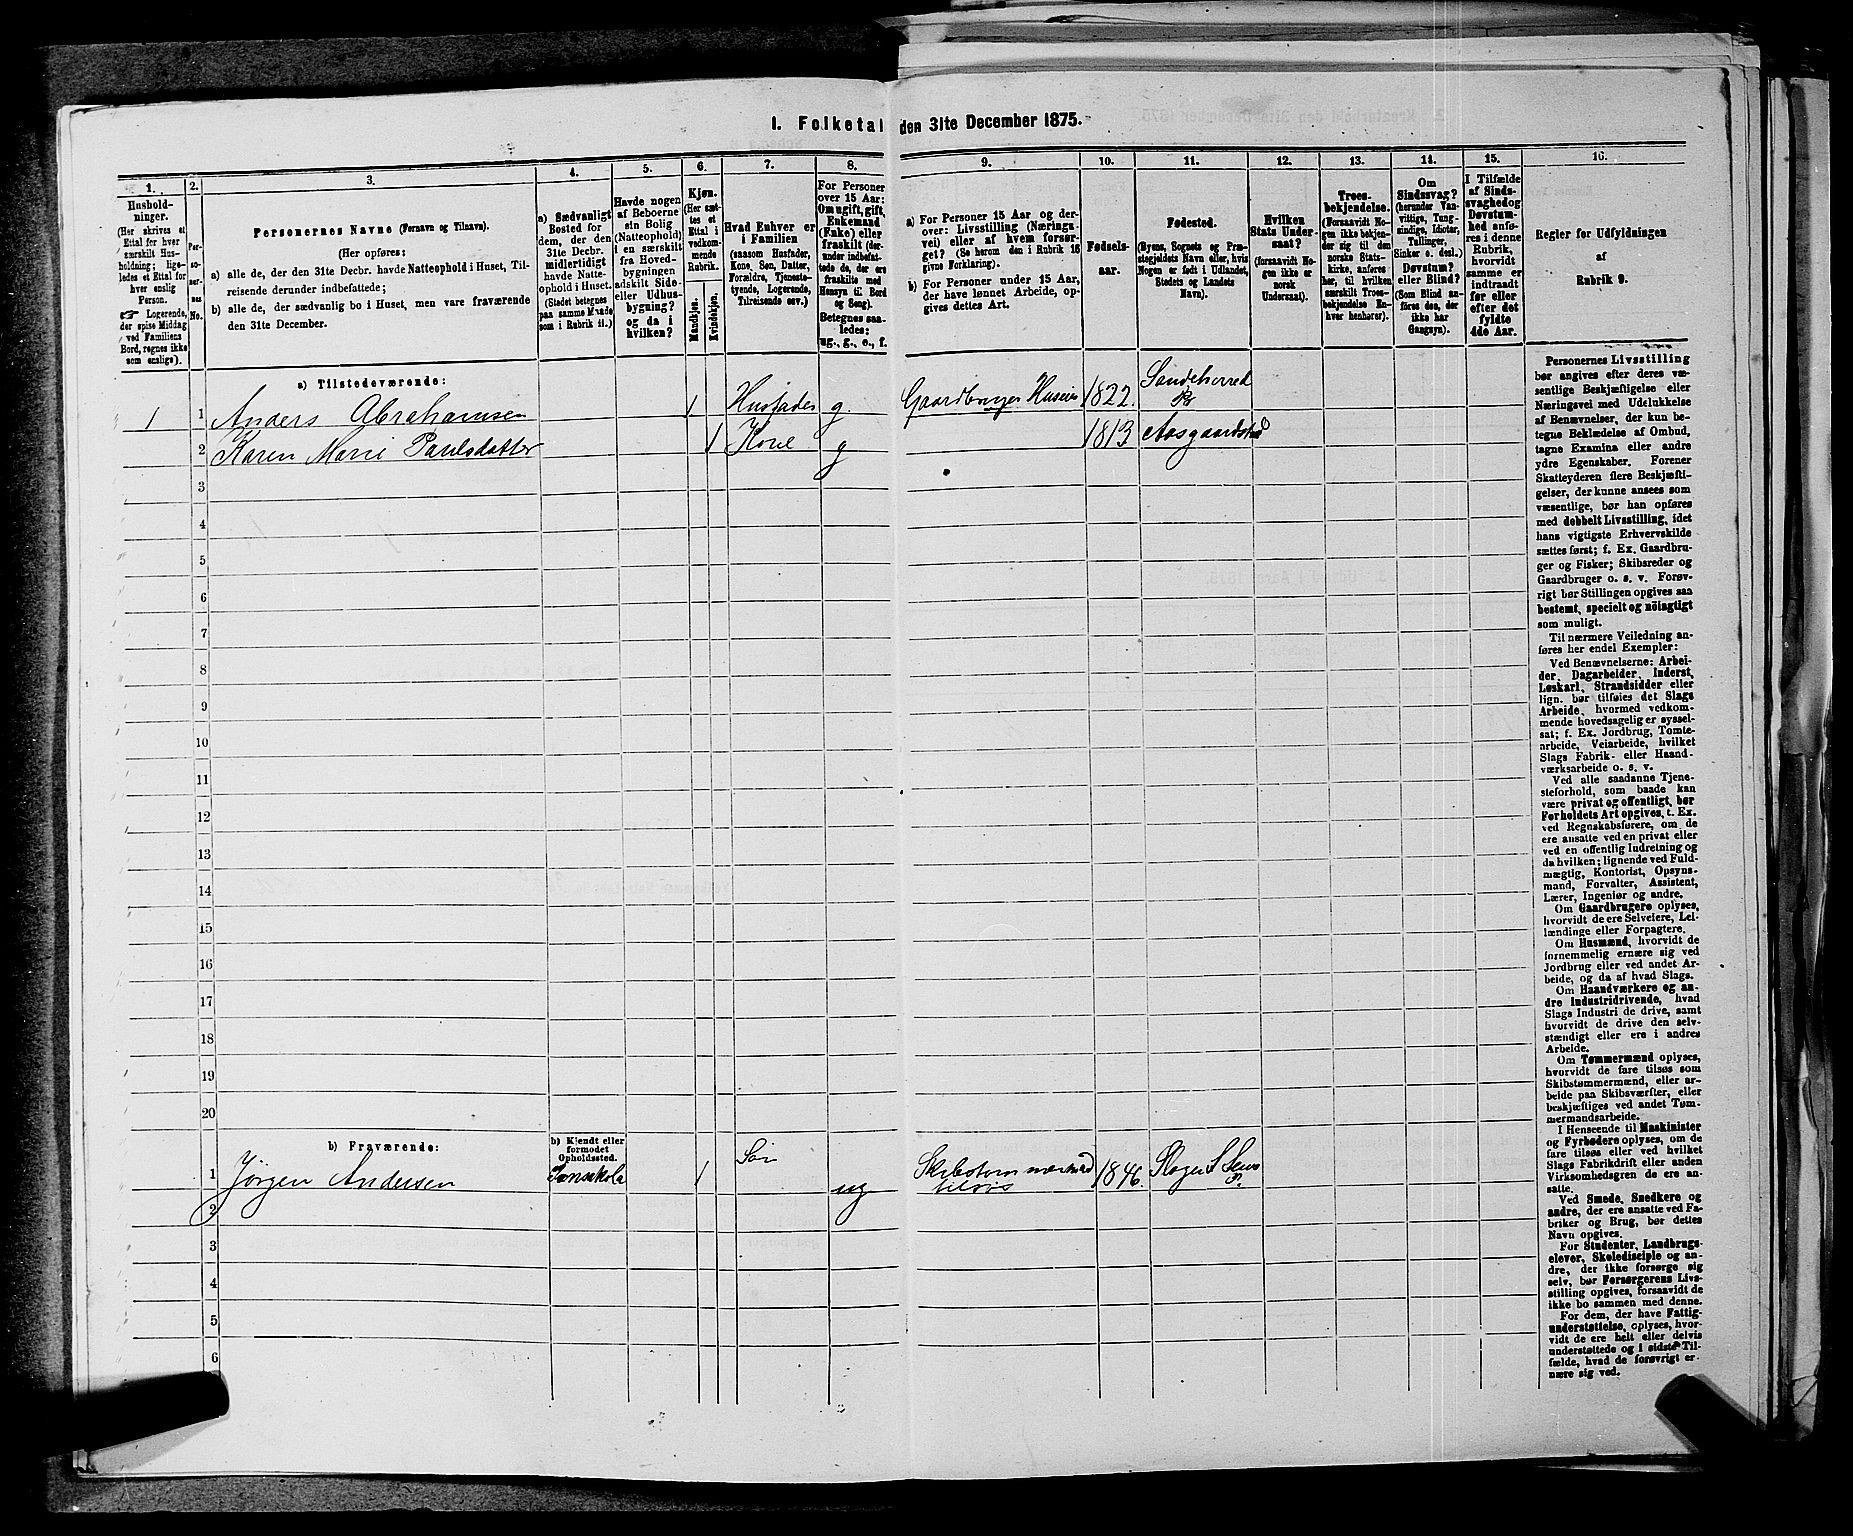 I. Folketal den 31te December 1875.
1.
Hushold-
ninger.
(Her skrives et
Ettal for hver
særskilt Hus-
holdning; lige-
ledes et Ettal for
hver enslig
Person.
☞ Logerende,
der spise Middag
ved Familiens
Bord, regnes ikke
som enslige).
2.
Per-
so-
ner-
nes
No.
3.
Personernes Navne (Fornavn og Tilnavn).
(Her opføres:
a) alle de, der den 31te Decbr. havde Natteophold i Huset, Til-
reisende derunder indbefattede;
b) alle de, der sædvanlig bo i Huset, men vare fraværende
den 31te December.
4.
a) Sædvanligt
Bosted for
dem, der den
31te Decbr.
midlertidigt
havde Natte-
ophold i Huset.
(Stedet betegnes
paa samme Maade
som i Rubrik 11.)
5.
Havde nogen
af Beboerne
sin Bolig
(Natteophold)
i en særskilt
fra Hoved-
bygningen
adskilt Side-
eller Udhus-
bygning?
og da i
hvilken?
6.
Kjøn.
(Her sæt-
tes et
Ettal i
vedkom-
mende
Rubrik.
Mandkjøn.
Kvindekjøn.
7.
Hvad Enhver er
i Familien
(saasom Husfader,
Kone, Søn, Datter,
Forældre, Tjeneste-
tyende, Logerende,
Tilreisende osv.)
8.
For Personer
over 15 Aar:
Om ugift, gift,
Enkemand
(Enke) eller
fraskilt (der-
under indbefat-
tede de, der ere
fraskilte med
Hensyn til Bord
og Seng).
Betegnes saa-
ledes:
ug., g., e., f.
9.
a) For Personer 15 Aar og der-
over: Livsstilling (Nærings-
vei) eller af hvem forsør-
get? (Se herom den i Rubrik 16
givne Forklaring).
b) For Personer under 15 Aar,
der have lønnet Arbeide, op-
gives dettes Art.
10.
Fødsels-
aar.
11.
Fødested.
(Byens, Sognets og Præ-
stegjeldets Navn eller, hvis
Nogen er født i Udlandet,
Stedets og Landets
Navn).
12.
Hvilken
Stats Under-
saat?
(forsaavidt No-
gen ikke er
norsk
Undersaat).
13.
Troes-
bekjendelse.
(Forsaavidt No-
gen ikke bekjen-
der sig til den
norske Stats-
kirke, anføres
her, til hvilken
særskilt Troes-
bekjendelse En-
hver henhører).
14.
Om
Sindssvag?
(herunder Van-
vittige, Tung-
sindige, Idioter,
Tullinger,
Sinker o. desl.)
Døvstum?
eller Blind?
(Som Blind an-
føres den, der
ikke har
Gangsyn).
15.
I Tilfælde
af Sinds-
svaghed og
Døvstum-
hed anfø-
res i denne
Rubrik,
hvorvidt
samme er
indtraadt
før eller
efter det
fyldte
4de Aar.
16.
Regler for Udfyldningen
af
Rubrik 9.
a) Tilstedeværende:
1 1 Anders Abrahamsen 1 Husfader g. Gaardbruger Huseier 1822. Sandeherred
P
2 Karen Marie Paulsdatter 1 Kone g 1813 Aasgaardstrand
3
4
5
6
7
8
9
10
11
12
13
14
15
16
17
18
19
20
b) Fraværende:
b) Kjendt eller
formodet
Opholdssted.
1 Jörgen Andersen 1 Sön ug Skibstømmermand 1846. Slagen S
tilsös
2
3
4
5
6
Personernes Livsstilling
bør angives efter deres væ-
sentlige Beskjæftigelse eller
Næringsvei med Udelukkelse
af Benævnelser, der kun be-
tegne Beklædelse af Ombud,
tagne Examina eller andre
ydre Egenskaber. Forener
Skatteyderen flere Beskjæfti-
gelser, der kunne ansees som
væsentlige, bør han opføres
med dobbelt Livsstilling, idet
hans vigtigste Erhvervskilde
sættes først; f. Ex. Gaardbru-
ger og Fisker; Skibsreder og
Gaardbruger o. s. v. Forøv-
rigt bør Stillingen opgives saa
bestemt, specielt og nöiagtigt
som muligt.
Til nærmere Veiledning an-
føres her endel Exempler:
Ved Benævnelserne: Arbei-
der, Dagarbeider, Inderst,
Løskarl, Strandsidder eller
lign. bør tilføies det Slags
Arbeide, hvormed vedkom-
mende hovedsagelig er syssel-
sat; f. Ex. Jordbrug, Tomte-
arbeide, Veiarbeide, hvilket
Slags Fabrik- eller Haand-
værksarbeide o. s. v.
Ved alle saadanne Tjene-
steforhold, som baade kan
være privat og offentligt, bør
Forholdets Art opgives, t. Ex.
ved Regnskabsførere, om de
ere ansatte ved en privat eller
ved en offentlig Indretning og
da hvilken; lignende ved Fuld-
mægtig, Kontorist, Opsyns-
mand, Forvalter, Assistent,
Lærer, Ingeniør og andre.
Om Gaardbrugere oplyses,
hvorvidt de ere Selveiere, Lei-
lændinge eller Forpagtere.
Om Husmænd, hvorvidt de
fornemmelig ernære sig ved
Jordbrug eller ved andet Ar-
beide, og da af hvad Slags.
Om Haandværkere og an-
dre Industridrivende, hvad
Slags Industri de drive, samt
hvorvidt de drive den selv-
stændigt eller ere i andres
Arbeide.
Om Tømmermænd oplyses,
hvorvidt de fare tilsøs som
Skibstømmermænd, eller ar-
beide paa Skibsværfter, eller
beskjæftiges ved andet Tøm-
mermandsarbeide.
I Henseende til Maskinister
og Fyrbødere oplyses, om de
fare tilsøs eller ved hvilket
Slags Fabrikdrift eller anden
Virksomhedsgren de ere an-
satte.
Ved Smede, Snedkere og
andre, der ere ansatte ved Fa-
briker og Brug, bør dettes
Navn opgives.
For Studenter, Landbrugs-
elever, Skoledisciple og an-
dre, der ikke forsørge sig
selv, bør Forsørgerens Livs-
stilling opgives, forsaavidt de
ikke bo sammen med denne.
For dem, der have Fattig-
understøttelse, oplyses, hvor-
vidt de ere helt eller delvis
understøttede og i sidste Til-
fælde, hvad de forøvrigt er-
nære sig ved.